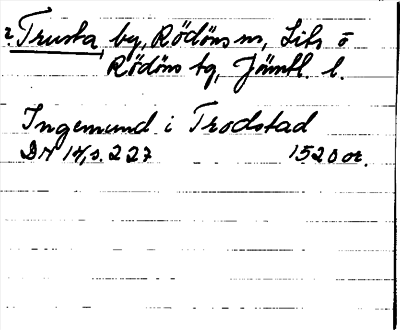 2. Trusta by, Rödöns sn, Lits o
Rödöns tg, Jämtl. l.
Ingemund i Trodstad
DN 14, s. 227 1520 or.